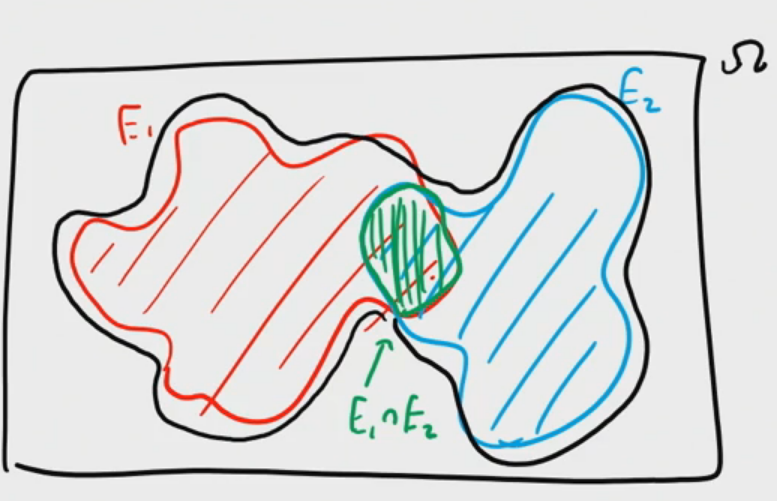 Ω
E₁
E₂
E₁∩E₂